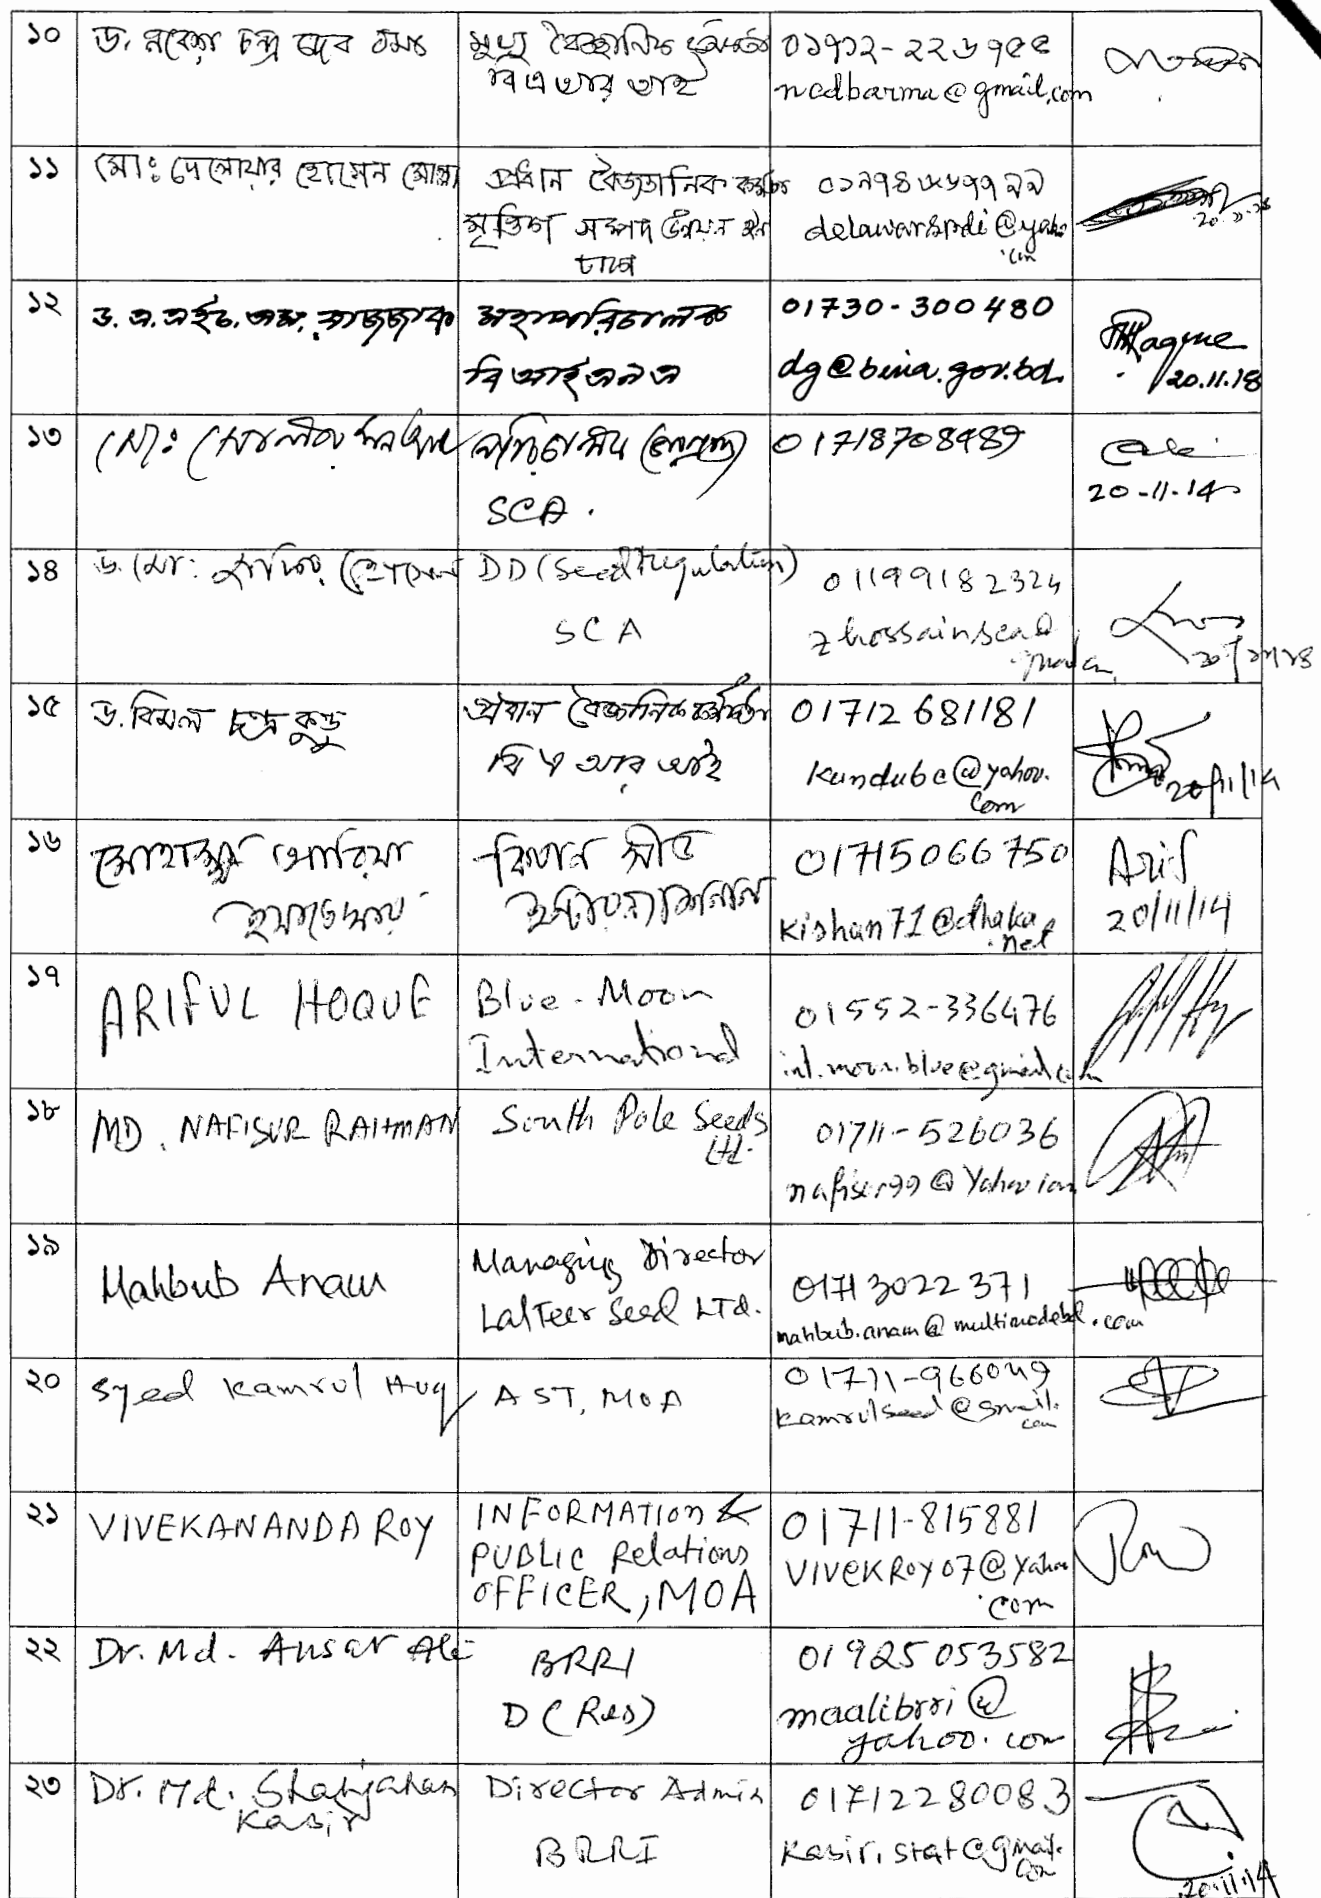 ১০
ড. নরেশ চন্দ্র দেব বর্মা
মুখ্য বৈজ্ঞানিক কর্মকর্তা
বি এ আর আই
০১৭১২-২২৬৭৫৫
ncdbarma@gmail.com
১১
মোঃ দেলোয়ার হোসেন মোল্লা
প্রধান বৈজ্ঞানিক কর্মকর্তা
মৃত্তিকা সম্পদ উন্নয়ন
ঢাকা
delawarsrdi@yahoo
.com
20.11.14
১২
ড. এ. এইচ. এম. রাজ্জাক
মহাপরিচালক
বি আই এন এ
01730-300480
dg@bina.gov.bd
20.11.14
১৩
মোঃ
SCA.
01718708489
20-11-14
১৪
ড. মো: হোসেন
DD (Seed Regulation)
SCA
01199182324
zhossainsca@
১৫
ড. বিমল চন্দ্র কুন্ডু
প্রধান বৈজ্ঞানিক কর্মকর্তা
বি এ আর আই
01712681181
kundubc@yahoo.
com
20/11/14
১৬
মোহাম্মদ
কিষান সীড
ইন্টারন্যাশনাল
01715066750
kishan71@dhaka
.net
Arif
20/11/14
১৭
ARIFUL HOQUE
Blue-Moon
International
01552-336476
int.moon.blue@gmail.com
১৮
MD. NAFISUR RAHMAN
South Pole Seeds
Ltd.
01711-526036
@Yahoo.com
১৯
Mahbub Anam
Managing Director
LalTeer Seed LTd.
01713022371
mahbub.anam@multimodebd.com
২০
Syed Kamrul Huq
AST, MOA
01711-966049
kamrulseed@gmail.
com
২১
VIVEKANANDA ROY
INFORMATION &
PUBLIC Relations
OFFICER, MOA
01711-815881
VIVEKROY07@Yahoo
.com
Roy
২২
Dr. Md. Ansar Ali
BRRI
D (Res)
01925053582
maalibrri@
yahoo.com
২৩
Dr. Md. Shahjahan
Kabir
Director Admin
BRRI
01712280083
kabir.stat@gmail.
com
20.11.14